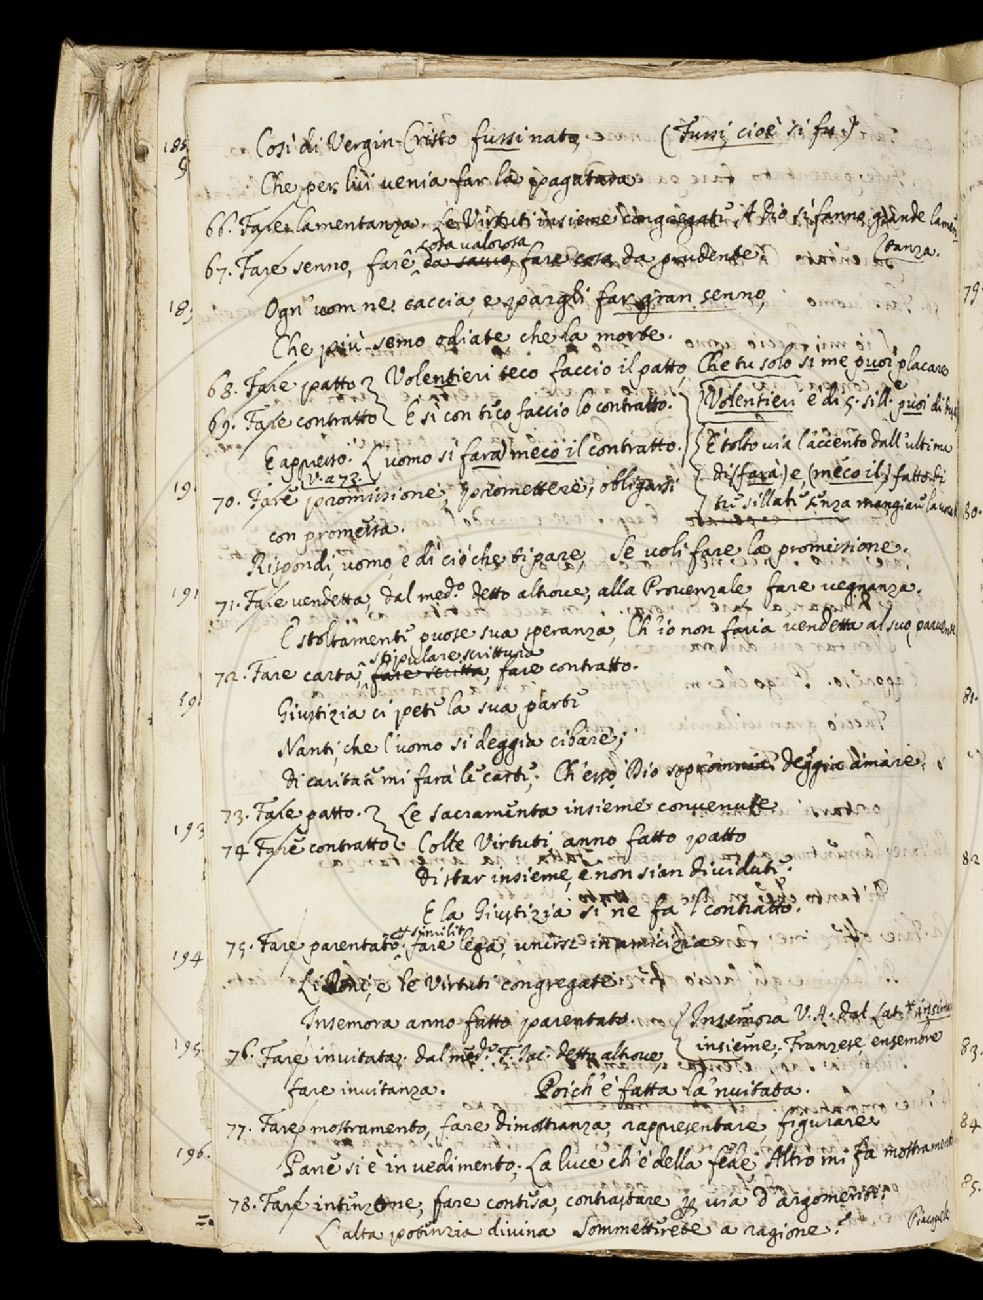 Così di Vergin Cristo fussi nato, (Fussi, cioè si fu.)
Che per lui venia far la pagatura
66. Fare lamentanza. Le Virtuti insieme congregate, A Dio si fanno grande lamentanza.
67. Fare senno, fare cosa valorosa da savio, fare cosa da prudente.
Ogn' uom ne caccia, e pargli far gran senno,
Che più semo odiate che la morte.
68. Fare patto Volentieri teco faccio il patto, Che tu solo si me puoi placare
69. Fare contratto E sì con tico faccio lo contratto. Volentieri è di 5. sill. e puoi di
E appresso. L'uomo si farà meco il contratto. È tolto via l'accento dall'ultima
V. a 73. di (farà) e, (meco il) fatto di
70. Fare promissione, promettere, obligarsi tre sillabe senza mangiare la vocale
con promessa.
Rispondi, uomo, e di ciò che ti pare, Se voli fare la promissione.
71. Fare vendetta, dal med.o detto altrove, alla Provenzale fare vegnanza.
E stoltamente puose sua speranza, Ch' io non faria vendetta al suo parvente
72. Fare carta, stipulare scrittura fare scritta, fare contratto.
Giustizia ci pete la sua parte
Nanti, che l'uomo si deggia cibare;
Di caritate mi farà le carte; Ch' esso Dio sopr omnia deggia amare.
73. Fare patto. Le Sacramenta insieme convenute
74. Fare contratto Colle Virtuti anno fatto patto
Di star insieme, e non sian dividute.
E la Giustizia si ne fa 'l contratto.
75. Fare parentato, et similit. fare lega, unirsi in amicizia
Li Doni, e le Virtuti congregate
Insemora anno fatto parentato. Insemora V. A. dal Lat.
76. Fare invitata. dal med.o F. Jac. detto altrove insieme, Franzese ensembre
fare invitanza. Poich' è fatta la 'nvitata.
77. Fare mostramento, fare dimostranza, rappresentare, figurare
Pane si è in vedimento, La luce ch' è della fede Altro mi fa mostramento
78. Fare intenzone, fare contesa, contrastare per via d'argomenti.
L'alta potenzia divina Sommetterete a ragione?
185
18
19
191
19
193
194
195
196.
79
80.
81.
82
83.
84
85.